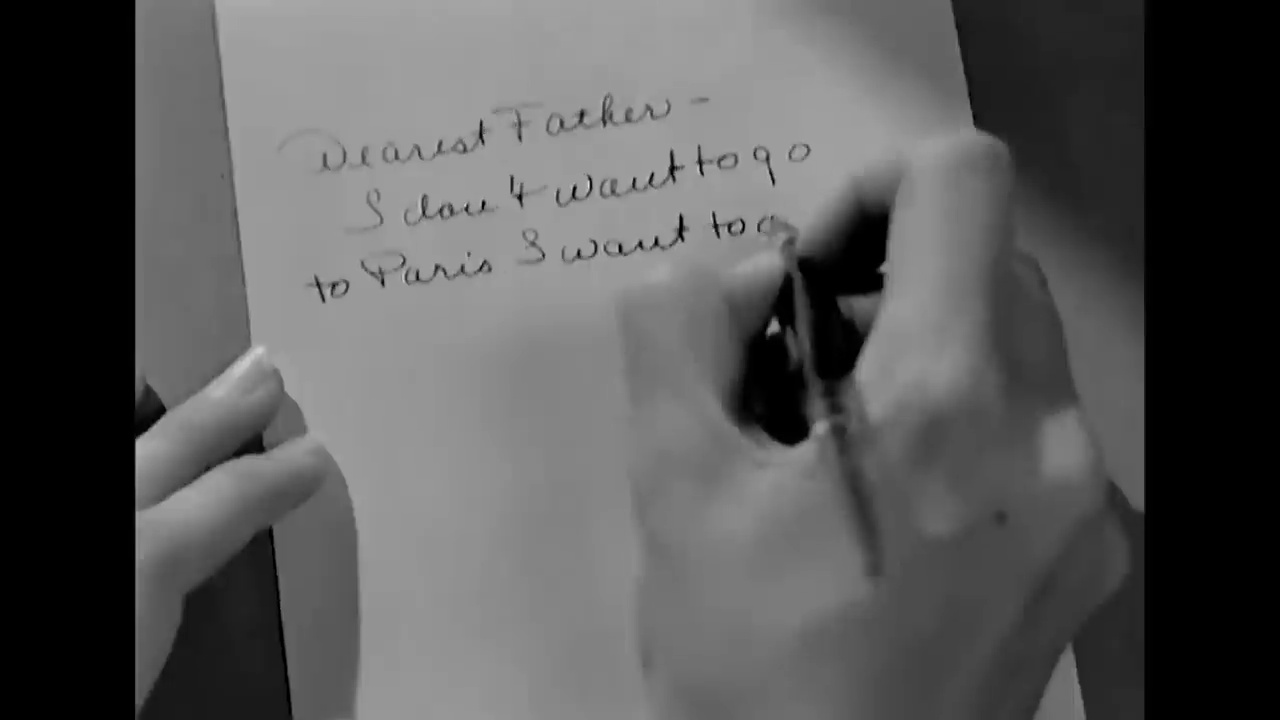 Dearest Father -
I don't want to go
to Paris I want to